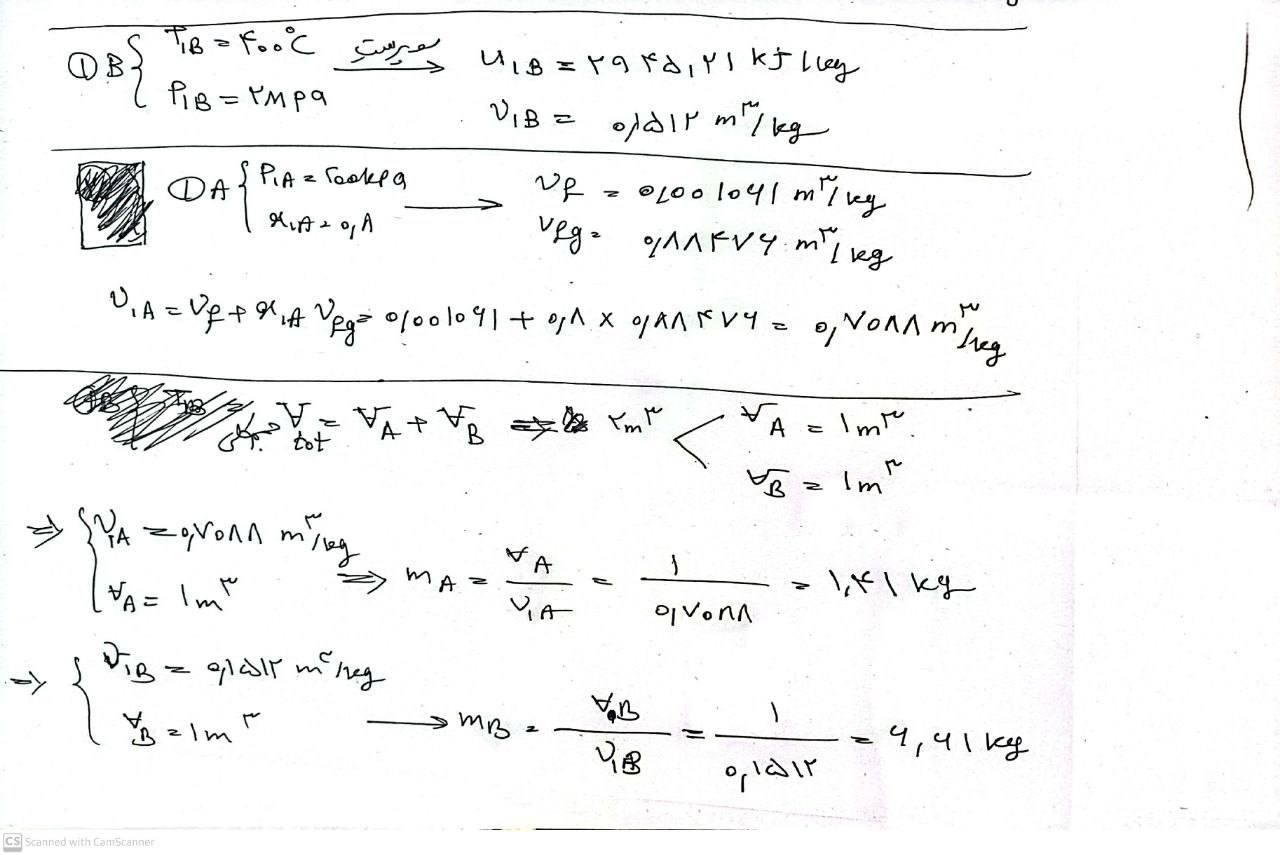 ① B { T₁B = ۴۰۰°C سوپرهیت → u₁B = ۲۹۴۵,۲۱ kJ/kg
P₁B = ۲Mpa
v₁B = ۰,۱۵۱۲ m³/kg
① A { P₁A = ۲۰۰kpa → v_f = ۰,۰۰۱۰۶۱ m³/kg
x₁A = ۰,۸
v_fg = ۰,۸۸۴۷۶ m³/kg
v₁A = v_f + x₁A v_fg = ۰,۰۰۱۰۶۱ + ۰,۸ × ۰,۸۸۴۷۶ = ۰,۷۰۸۸ m³/kg
V_tot = V_A + V_B ⇒ ۲m³ < V_A = ۱m³
V_B = ۱m³
⇒ { v₁A = ۰,۷۰۸۸ m³/kg
V_A = ۱m³ ⇒ m_A = V_A / v₁A = ۱ / ۰,۷۰۸۸ = ۱,۴۱ kg
⇒ { v₁B = ۰,۱۵۱۲ m³/kg
V_B = ۱m³ → m_B = V_B / v₁B = ۱ / ۰,۱۵۱۲ = ۶,۶۱ kg
CS Scanned with CamScanner